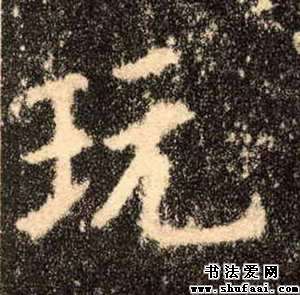 玩
书法爱网
www.shufaai.com